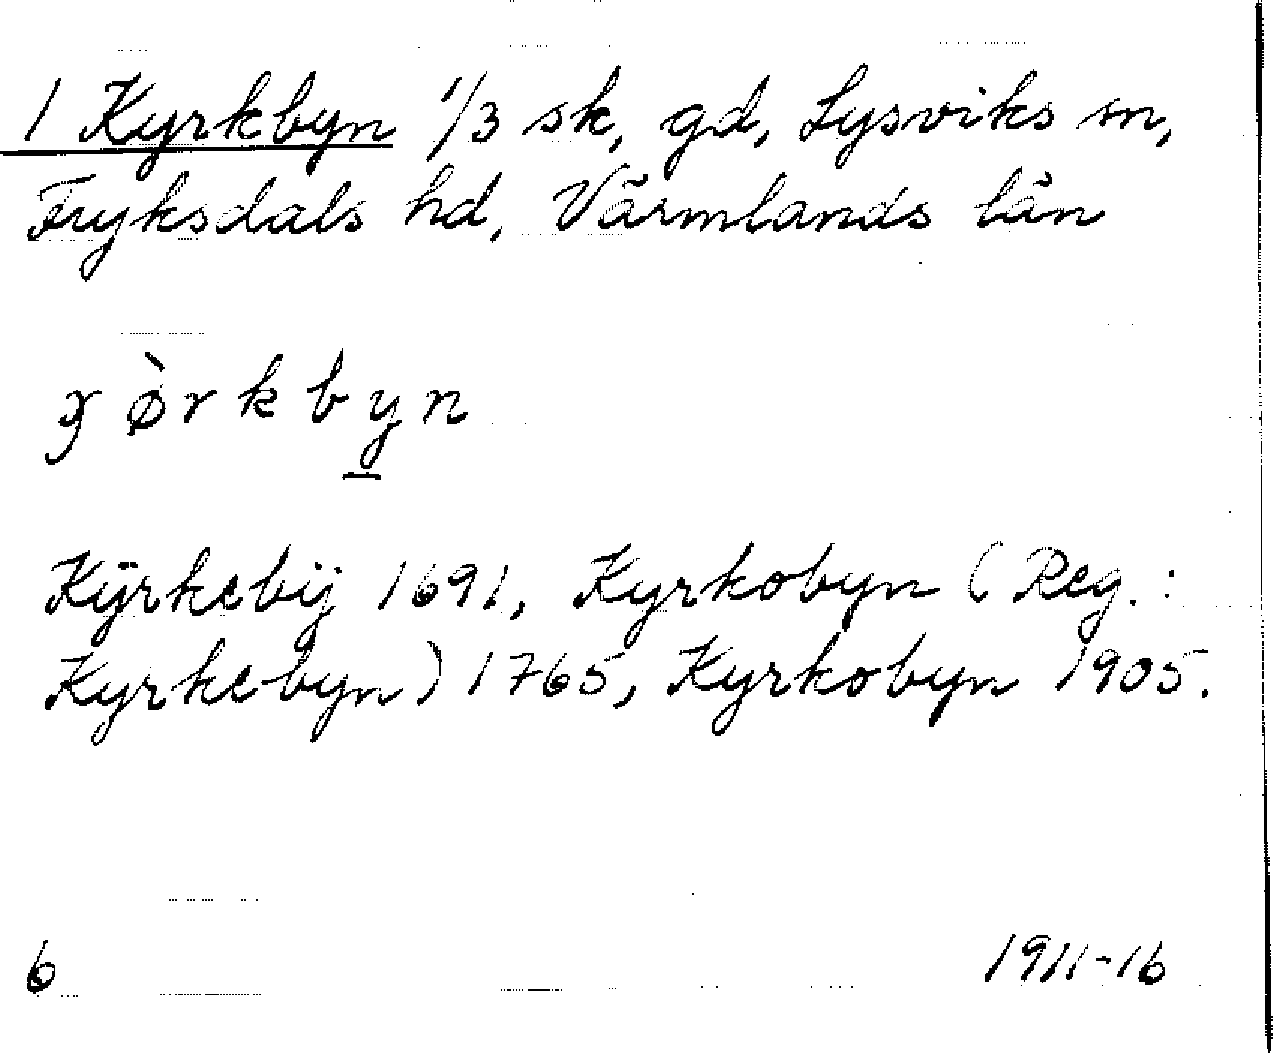 1 Kyrkbyn 1/3 sk, gd, Lysviks sn,
Fryksdals hd, Värmlands län
ɣø̀rkby̲n
Kÿrkebÿ 1691, Kyrkobyn (Reg.:
Kyrkebyn) 1765, Kyrkobyn 1905.
6 1911-16